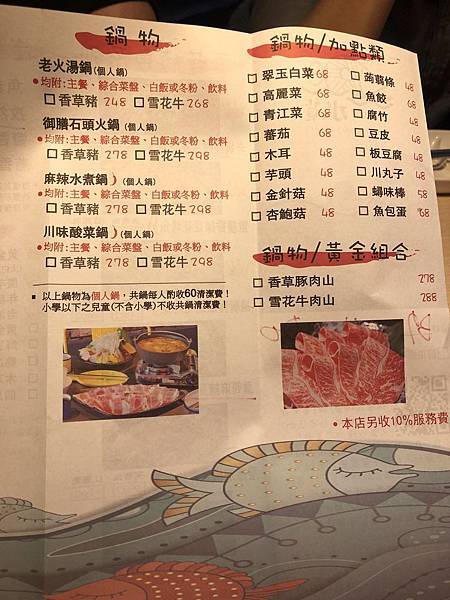 鍋物
老火湯鍋(個人鍋)
•均附:主餐、綜合菜盤、白飯或冬粉、飲料
□香草豬 248 □雪花牛 268
御膳石頭火鍋(個人鍋)
•均附:主餐、綜合菜盤、白飯或冬粉、飲料
□香草豬 278 □雪花牛 298
麻辣水煮鍋(個人鍋)
•均附:主餐、綜合菜盤、白飯或冬粉、飲料
□香草豬 278 □雪花牛 298
川味酸菜鍋(個人鍋)
•均附:主餐、綜合菜盤、白飯或冬粉、飲料
□香草豬 278 □雪花牛 298
▪以上鍋物為個人鍋,共鍋每人酌收60清潔費!
小學以下之兒童(不含小學)不收共鍋清潔費!
鍋物/加點類
□翠玉白菜 68
□高麗菜 68
□青江菜 68
□蕃茄 68
□木耳 48
□芋頭 48
□金針菇 48
□杏鮑菇 48
□蒟蒻條 48
□魚餃 48
□腐竹 48
□豆皮 48
□板豆腐 48
□川丸子 48
□蟳味棒 58
□魚包蛋 68
鍋物/黃金組合
□香草豚肉山 278
□雪花牛肉山 288
•本店另收10%服務費